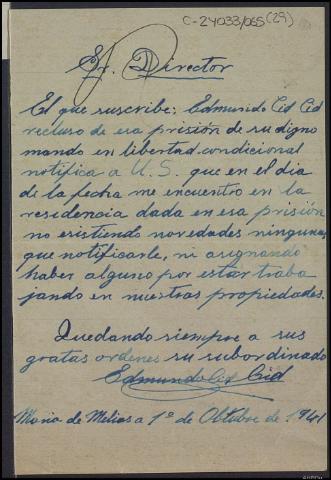 C-24033/055 (29)
Sr. Director
El que suscribe; Edmundo Cid Cid
recluso de esa prisión de su digno
mando en libertad condicional
notifica a U. S. que en el dia
de la fecha me encuentro en la
residencia dada en esa prisión
no existiendo novedades ningunas
que notificarle, ni asignando
haber alguno por estar traba
jando en nuestras propiedades.
Quedando siempre a sus
gratas ordenes su subordinado
Edmundo Cid Cid
de Melias a 1º de Obtubre de 1941